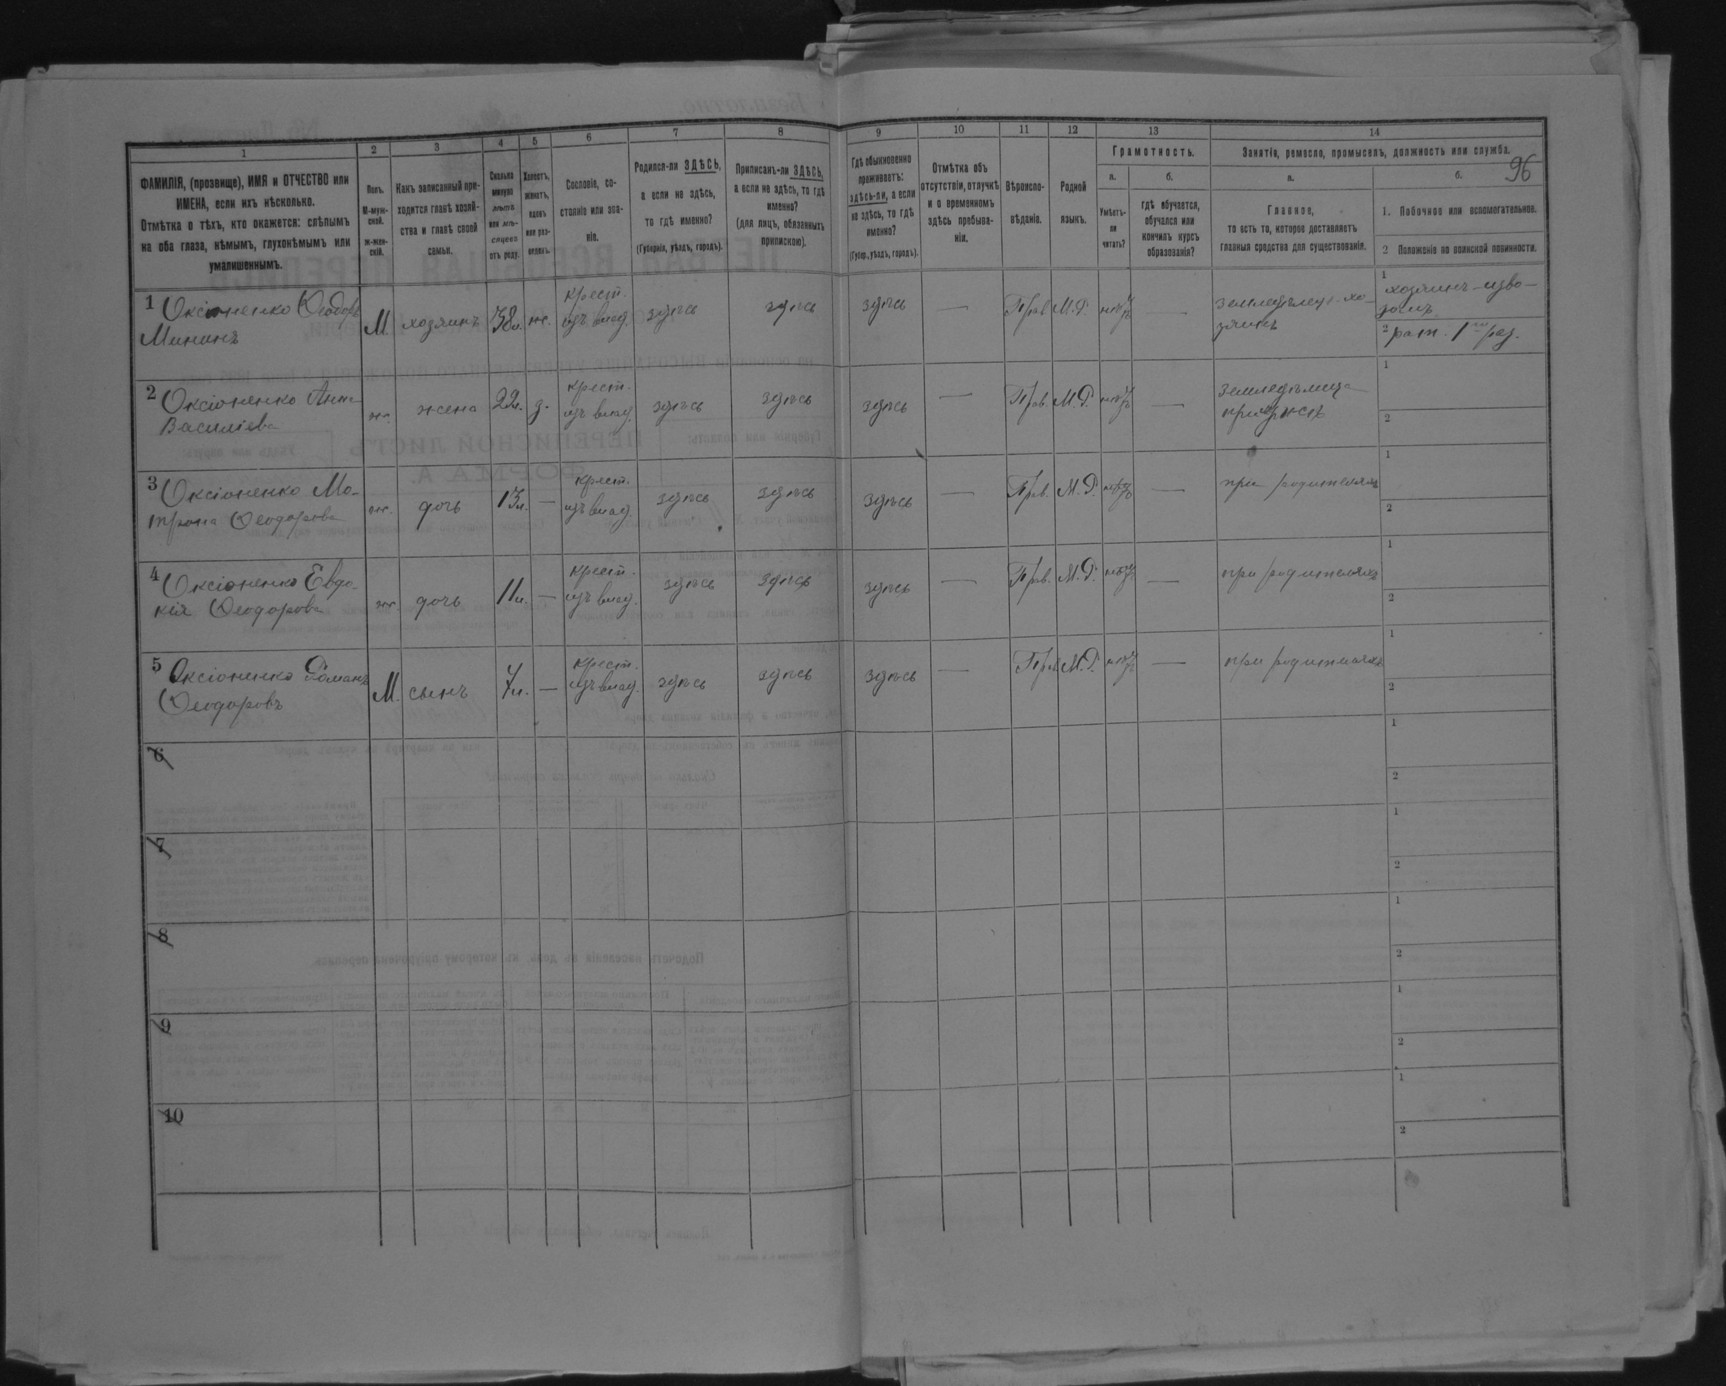 96
1 2 3 4 5 6 7 8 9 10 11 12 13 14
ФАМИЛІЯ, (прозвище), ИМЯ и ОТЧЕСТВО или
ИМЕНА, если ихъ нѣсколько.
Отмѣтка о тѣхъ, кто окажется: слѣпымъ
на оба глаза, нѣмымъ, глухонѣмымъ или
умалишеннымъ.
Полъ.
М-муж-
ской.
ж-жен-
скій.
Какъ записанный при-
ходится главѣ хозяй-
ства и главѣ своей
семьи.
Сколько
минуло
лѣтъ
или мѣ-
сяцевъ
отъ роду.
Холостъ,
женатъ,
вдовъ
или раз-
веденъ.
Сословіе, со-
стояніе или зва-
ніе.
Родился-ли ЗДѢСЬ,
а если не здѣсь,
то гдѣ именно?
(Губернія, уѣздъ, городъ).
Приписанъ-ли ЗДѢСЬ,
а если не здѣсь, то гдѣ
именно?
(для лицъ, обязанныхъ
припискою).
Гдѣ обыкновенно
проживаетъ:
здѣсь-ли, а если
не здѣсь, то гдѣ
именно?
(Губер., уѣздъ, городъ).
Отмѣтка объ
отсутствіи, отлучкѣ
и о временномъ
здѣсь пребыва-
ніи.
Вѣроиспо-
вѣданіе.
Родной
языкъ.
Грамотность.
а.
Умѣетъ-
ли
читать?
б.
гдѣ обучается,
обучался или
кончилъ курсъ
образованія?
Занятіе, ремесло, промыселъ, должность или служба.
а.
Главное,
то есть то, которое доставляетъ
главныя средства для существованія.
б.
1. Побочное или вспомогательное.
2 Положеніе по воинской повинности.
1 Оксіоненко Ѳедоръ
Мининъ
М. хозяинъ 38л. ж. крест.
изъ влад. здѣсь здѣсь здѣсь — Прав. М.Р. нѣтъ — земледѣлецъ хо-
зяинъ
1 хозяинъ-изво-
2 рат. 1го раз.
2 Оксіоненко Анна
Василіева
ж. жена 22л. з. крест.
изъ влад. здѣсь здѣсь здѣсь — Прав. М.Р. нѣтъ — земледѣлица
1
2
3 Оксіоненко Мо-
трона Ѳеодорова
ж. дочь 13л. — крест.
изъ влад. здѣсь здѣсь здѣсь — Прав. М.Р. нѣтъ — при родителяхъ
1
2
4 Оксіоненко Евдо-
кія Ѳеодорова
ж. дочь 11л. — крест.
изъ влад. здѣсь здѣсь здѣсь — Прав. М.Р. нѣтъ — при родителяхъ
1
2
5 Оксіоненко Романъ
Ѳеодоровъ
М. сынъ 7л. — крест.
изъ влад. здѣсь здѣсь здѣсь — Прав. М.Р. нѣтъ — при родителяхъ
1
2
6
1
2
7
1
2
8
1
2
9
1
2
10
1
2